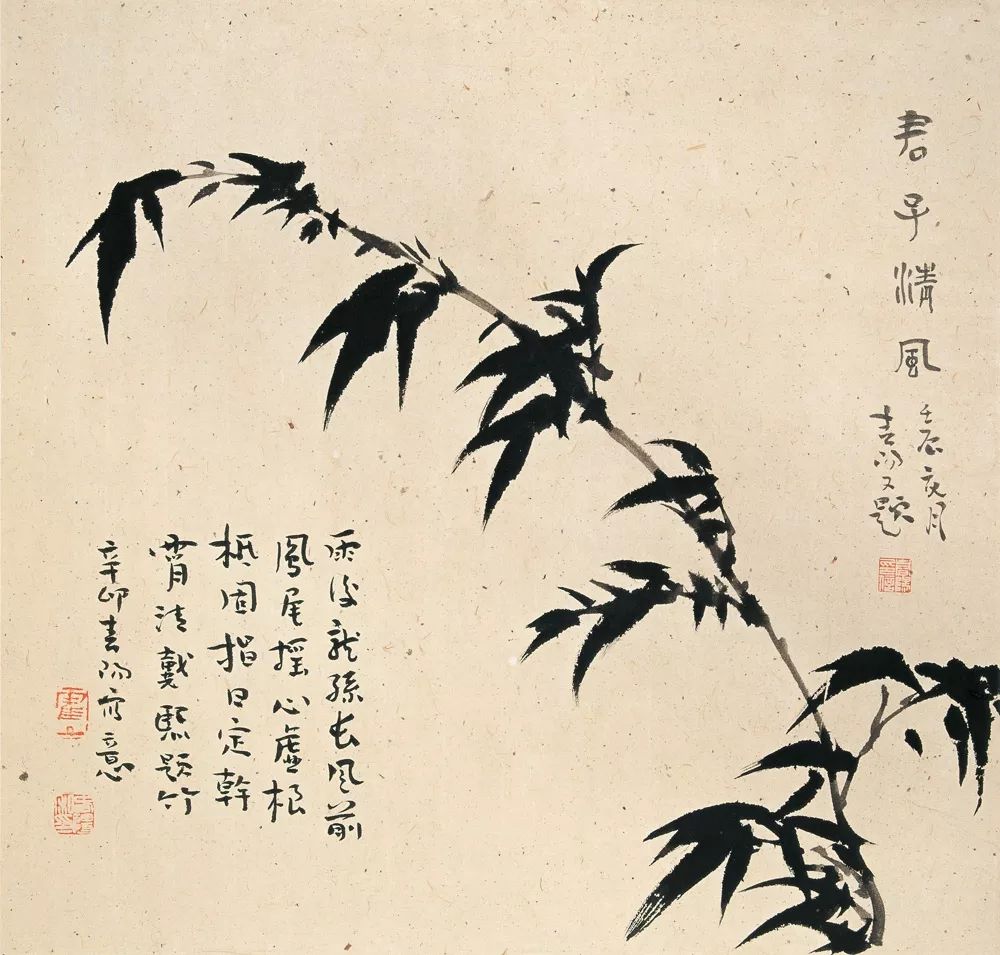 君子清風
壬辰亥月
春陽又題
雨後龍孫長風前
鳳尾搖心虛根
柢固指日定幹
霄清戴熙題竹
辛卯春陽寫意